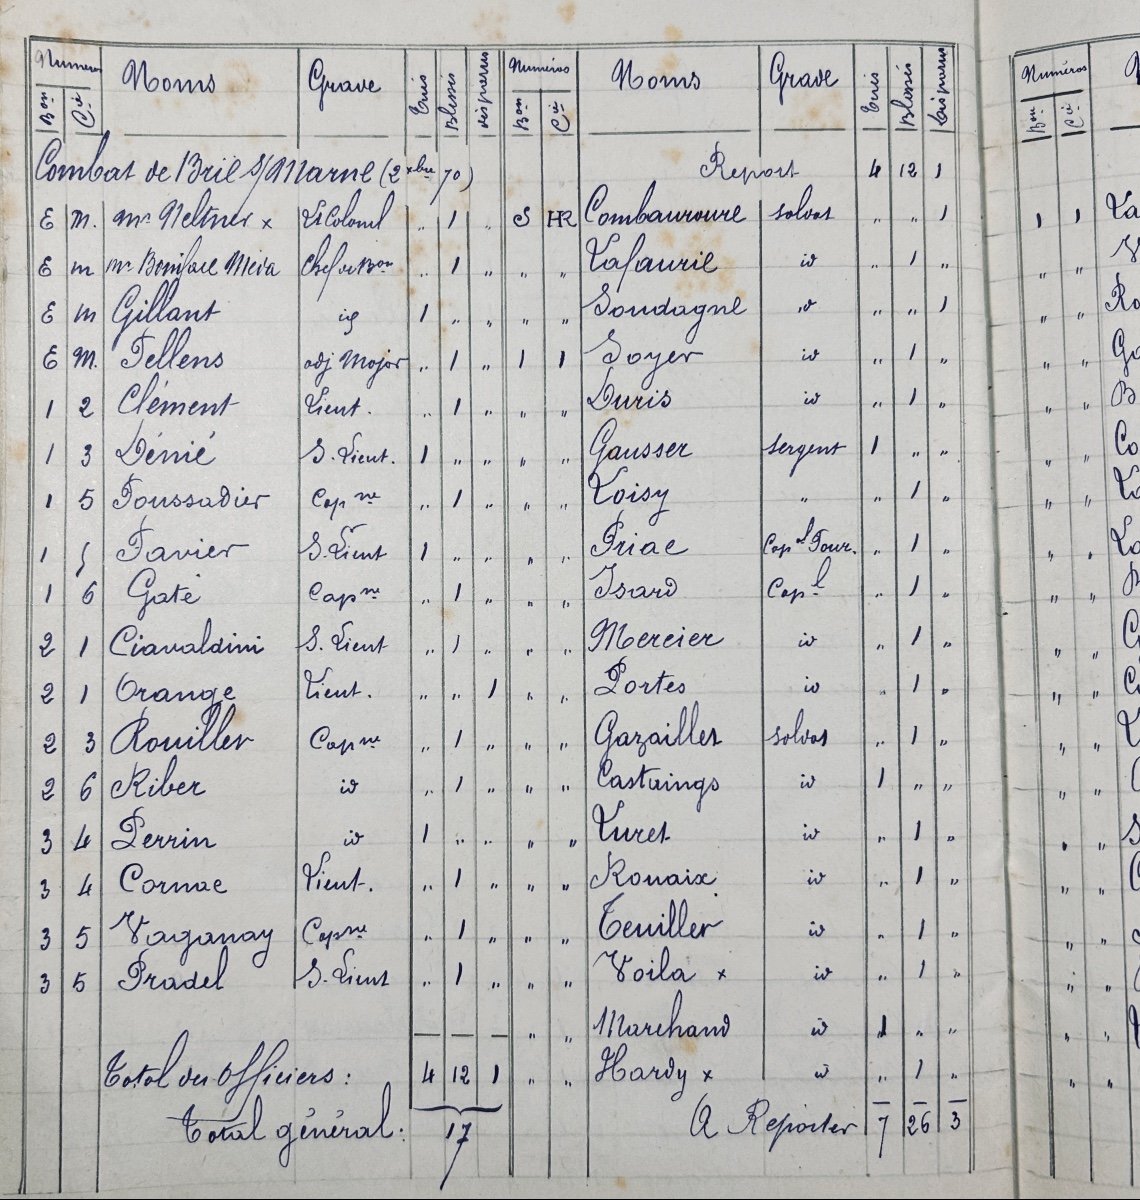 Numéros Noms Grade Tués Blessés disparus
Bon Cie
Combat de Brie s/Marne (2 xbre 70)
E M. Mr Neltner x Lt Colonel " 1 "
E m Mr Boniface Meda Chef de Bon " 1 "
E m Gillant id 1 " "
E M. Tellens adj Major " 1 "
1 2 Clément Lieut. " 1 "
1 3 Dénié S. Lieut. 1 " "
1 5 Toussadier Capne " 1 "
1 5 Favier S. Lieut 1 " "
1 6 Gaté Capne " 1 "
2 1 Ciavaldini S. Lieut " 1 "
2 1 Orange Lieut. " " 1
2 3 Rouiller Capne " 1 "
2 6 Kiber id " 1 "
3 4 Perrin id 1 " "
3 4 Cornac Lieut. " 1 "
3 5 Vaganay Capne " 1 "
3 5 Pradel S. Lieut " 1 "
Total des Officiers : 4 12 1
Total général : 17
Numéros Noms Grade Tués Blessés Disparus
Bon Cie
Report 4 12 1
S HR Combauroure soldat " " 1
" " Lafaurie id " 1 "
" " Soudagne id " " 1
1 1 Soyer id " 1 "
" " Duris id " 1 "
" " Gausser sergent 1 " "
" " Loisy " " 1 "
" " Priac Capal Four. " 1 "
" " Isard Capl " 1 "
" " Mercier id " 1 "
" " Portes id " 1 "
" " Gazailles soldat " 1 "
" " Castaings id 1 " "
" " Luret id " 1 "
" " Rouaix id " 1 "
" " Teuiller id " 1 "
" " Voila x id " 1 "
" " Marchand id 1 " "
" " Hardy x id " 1 "
A Reporter 7 26 3
Numéros
Bon Cie
1 1 La
" "
" " Ro
" " Ga
" " B
" " Co
" " La
" " La